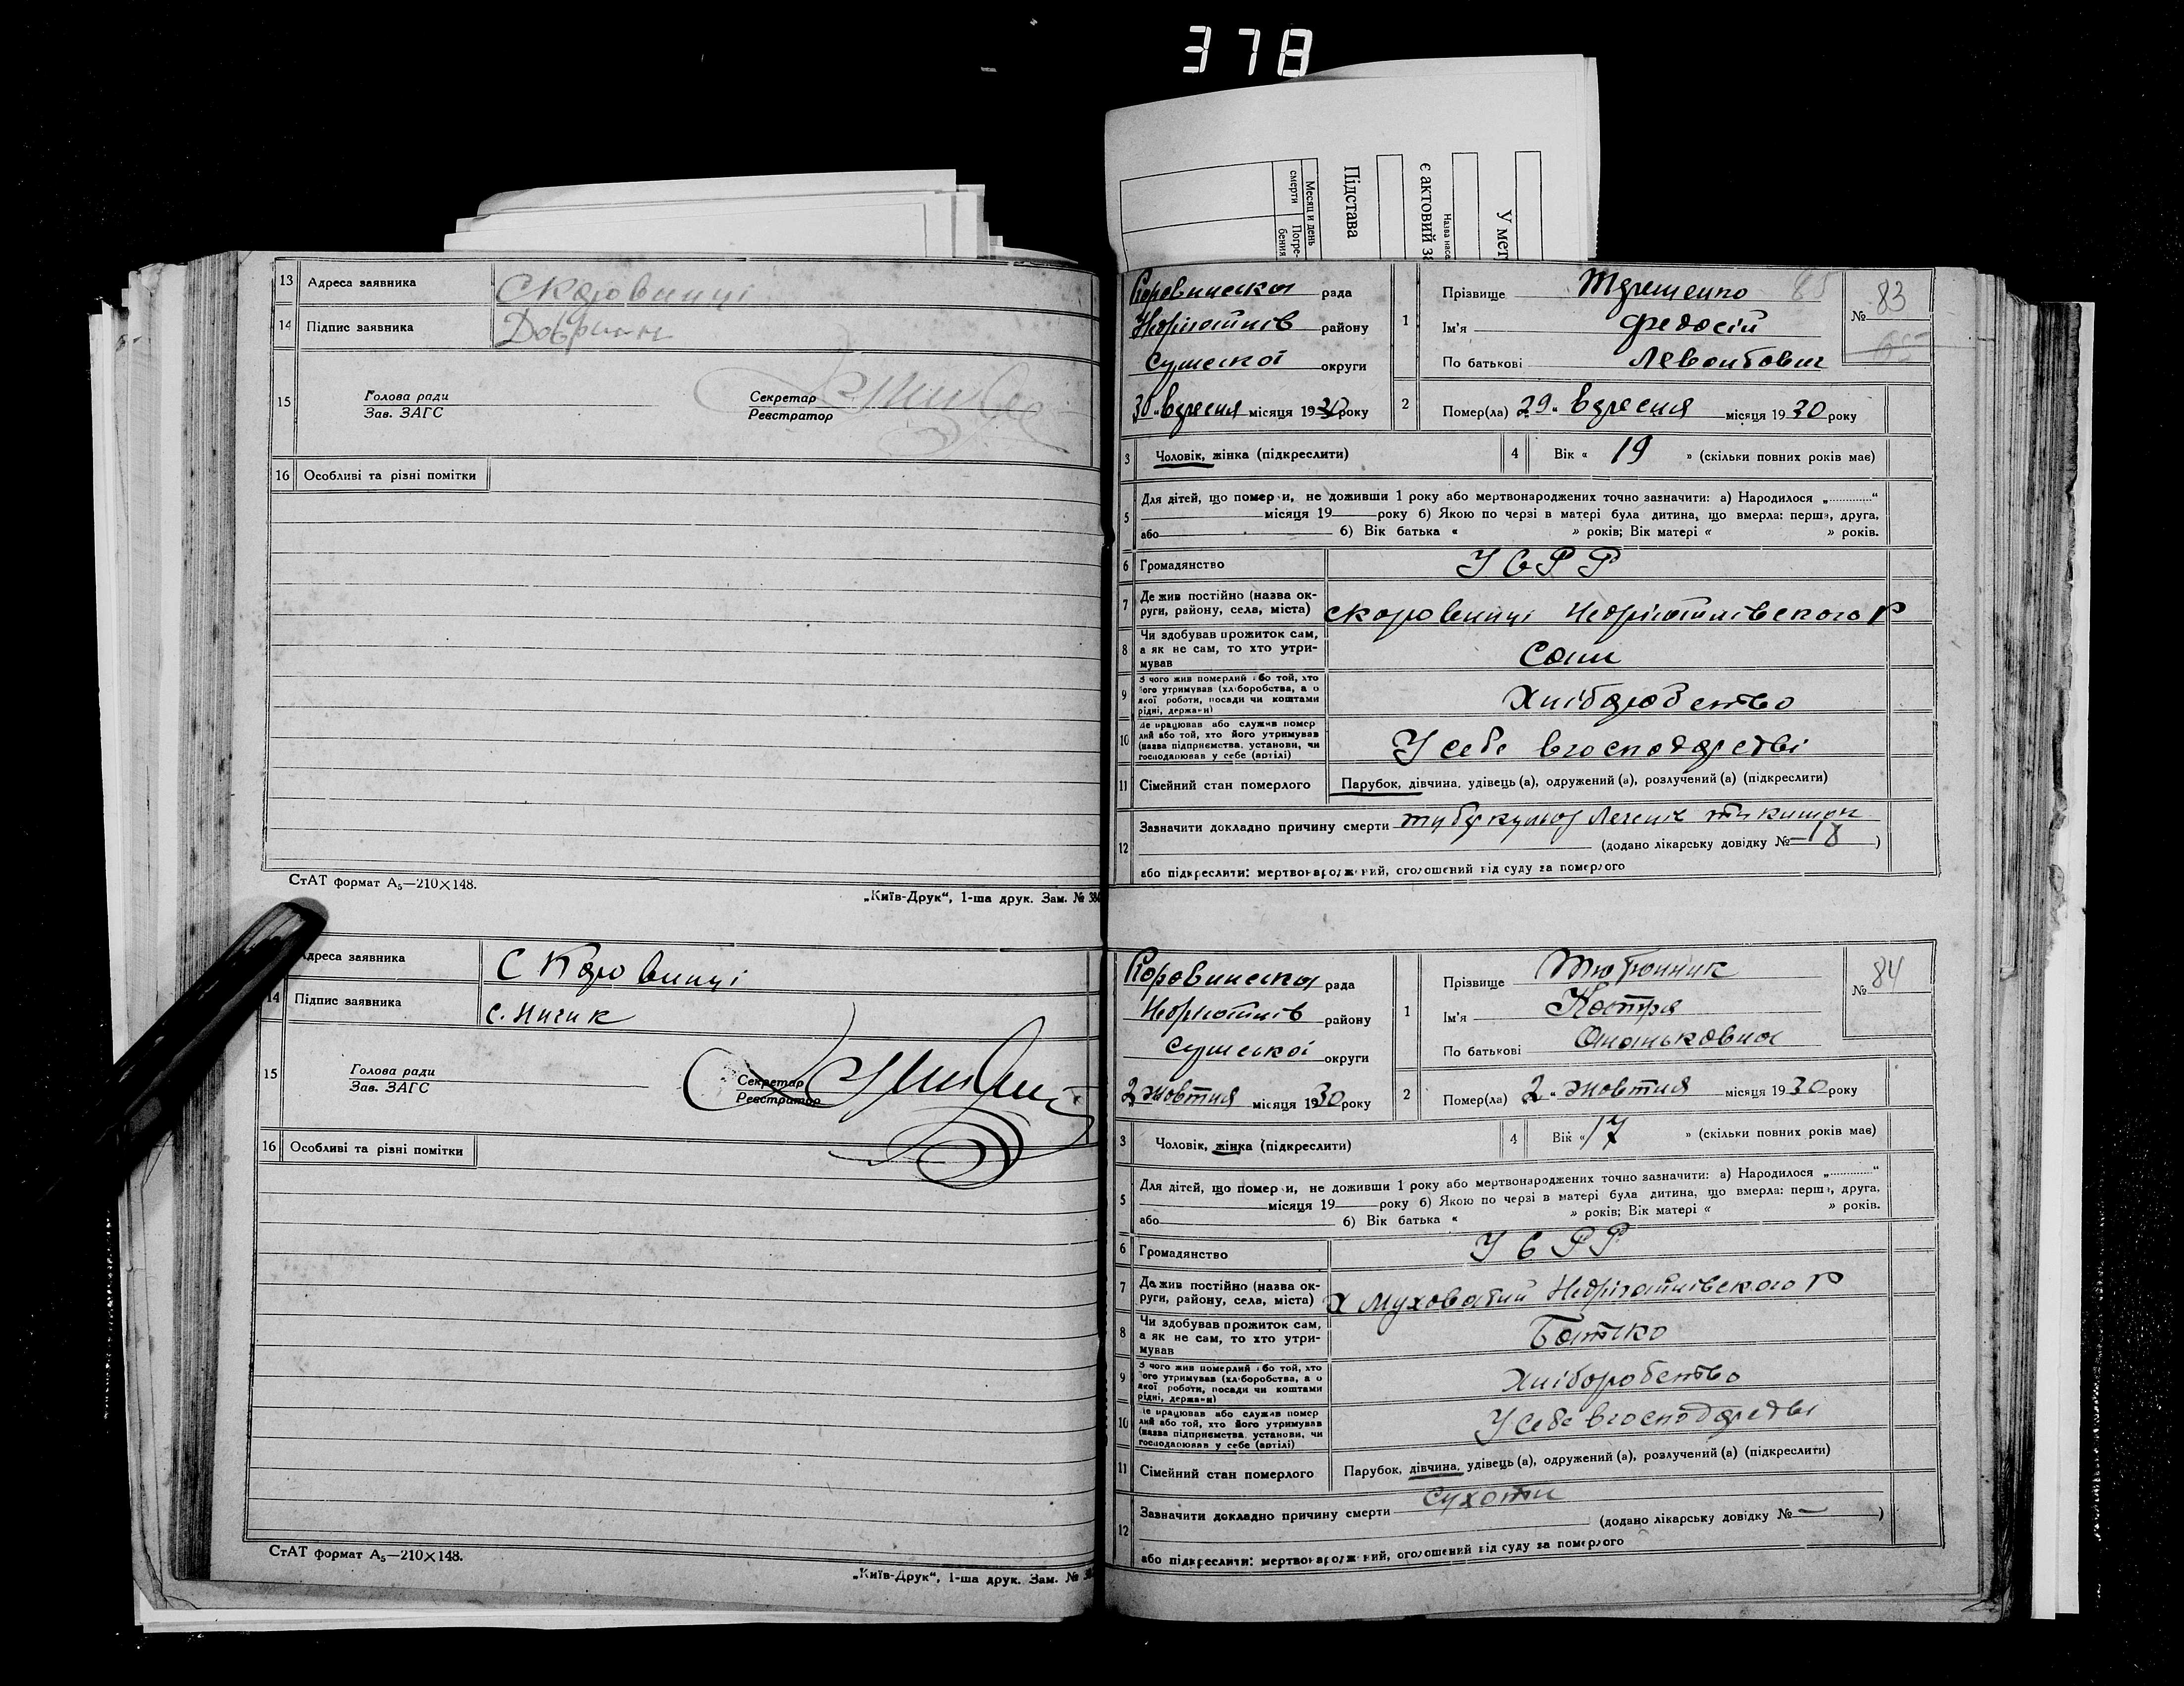 378
Месяц и день
смерти
Погре-
бения
Підстава
є актовий
Назва
У мет
13 Адреса заявника С Коровинці
14 Підпис заявника
15 Голова ради
Зав. ЗАГС
Секретар
Реєстратор
16 Особливі та різні помітки
СтАТ формат А₅—210×148.
„Київ-Друк“, 1-ша друк. Зам. №
Адреса заявника С Коровинці
14 Підпис заявника
15 Голова ради
Зав. ЗАГС
Секретар
Реєстратор
16 Особливі та різні помітки
СтАТ формат А₅—210×148.
„Київ-Друк“, 1-ша друк. Зам. №
Коровинська рада
Недригайлів району
Сумської округи
30 вересня місяця 1930 року
1 Прізвище Терещенко
Ім'я Федосій
По батькові Левонтович
№ 83
2 Помер(ла) 29 „ вересня місяця 1930 року
3 Чоловік, жінка (підкреслити)
4 Вік « 19 » (скільки повних років має)
5 Для дітей, що помер и, не доживши 1 року або мертвонароджених точно зазначити: а) Народилося „............“
місяця 19 року б) Якою по черзі в матері була дитина, що вмерла: перша, друга,
або б) Вік батька « » років; Вік матері « » років.
6 Громадянство УСРР
7 Де жив постійно (назва ок-
руги, району, села, міста) с коровинці Недрігайлівського р
8 Чи здобував прожиток сам,
а як не сам, то хто утри-
мував Сам
9 З чого жив померлий або той, хто
його утримував (хліборобства, а о
якої роботи, посади чи коштами
рідні, держави) Хліборобство
10 Де працював або служив помер
лий або той, хто його утримував
(назва підприємства, установи, чи
господарював у себе (артілі) У себе вгосподарстві
11 Сімейний стан померлого Парубок, дівчина, удівець (а), одружений (а), розлучений (а) (підкреслити)
12 Зазначити докладно причину смерти туберкульоз легенів та кишок
(додано лікарську довідку № 18 )
або підкреслити: мертвонароджений, оголошений від суду за померлого
Коровинська рада
Недригайлів району
Сумської округи
2 жовтня місяця 1930 року
1 Прізвище Тютюнник
Ім'я Кестря
По батькові Ониськовна
№ 84
2 Помер(ла) 2 „ жовтня місяця 1930 року
3 Чоловік, жінка (підкреслити)
4 Вік « 17 » (скільки повних років має)
5 Для дітей, що помер и, не доживши 1 року або мертвонароджених точно зазначити: а) Народилося „............“
місяця 19 року б) Якою по черзі в матері була дитина, що вмерла: перша, друга,
або б) Вік батька « » років; Вік матері « » років.
6 Громадянство УСРР
7 Де жив постійно (назва ок-
руги, району, села, міста) х Муховатий Недрігайлівського р
8 Чи здобував прожиток сам,
а як не сам, то хто утри-
мував Батько
9 З чого жив померлий або той, хто
його утримував (хліборобства, а о
якої роботи, посади чи коштами
рідні, держави) Хліборобство
10 Де працював або служив помер
лий або той, хто його утримував
(назва підприємства, установи, чи
господарював у себе (артілі) У себе вгосподарстві
11 Сімейний стан померлого Парубок, дівчина, удівець (а), одружений (а), розлучений (а) (підкреслити)
12 Зазначити докладно причину смерти Сухоти
(додано лікарську довідку № — )
або підкреслити: мертвонароджений, оголошений від суду за померлого